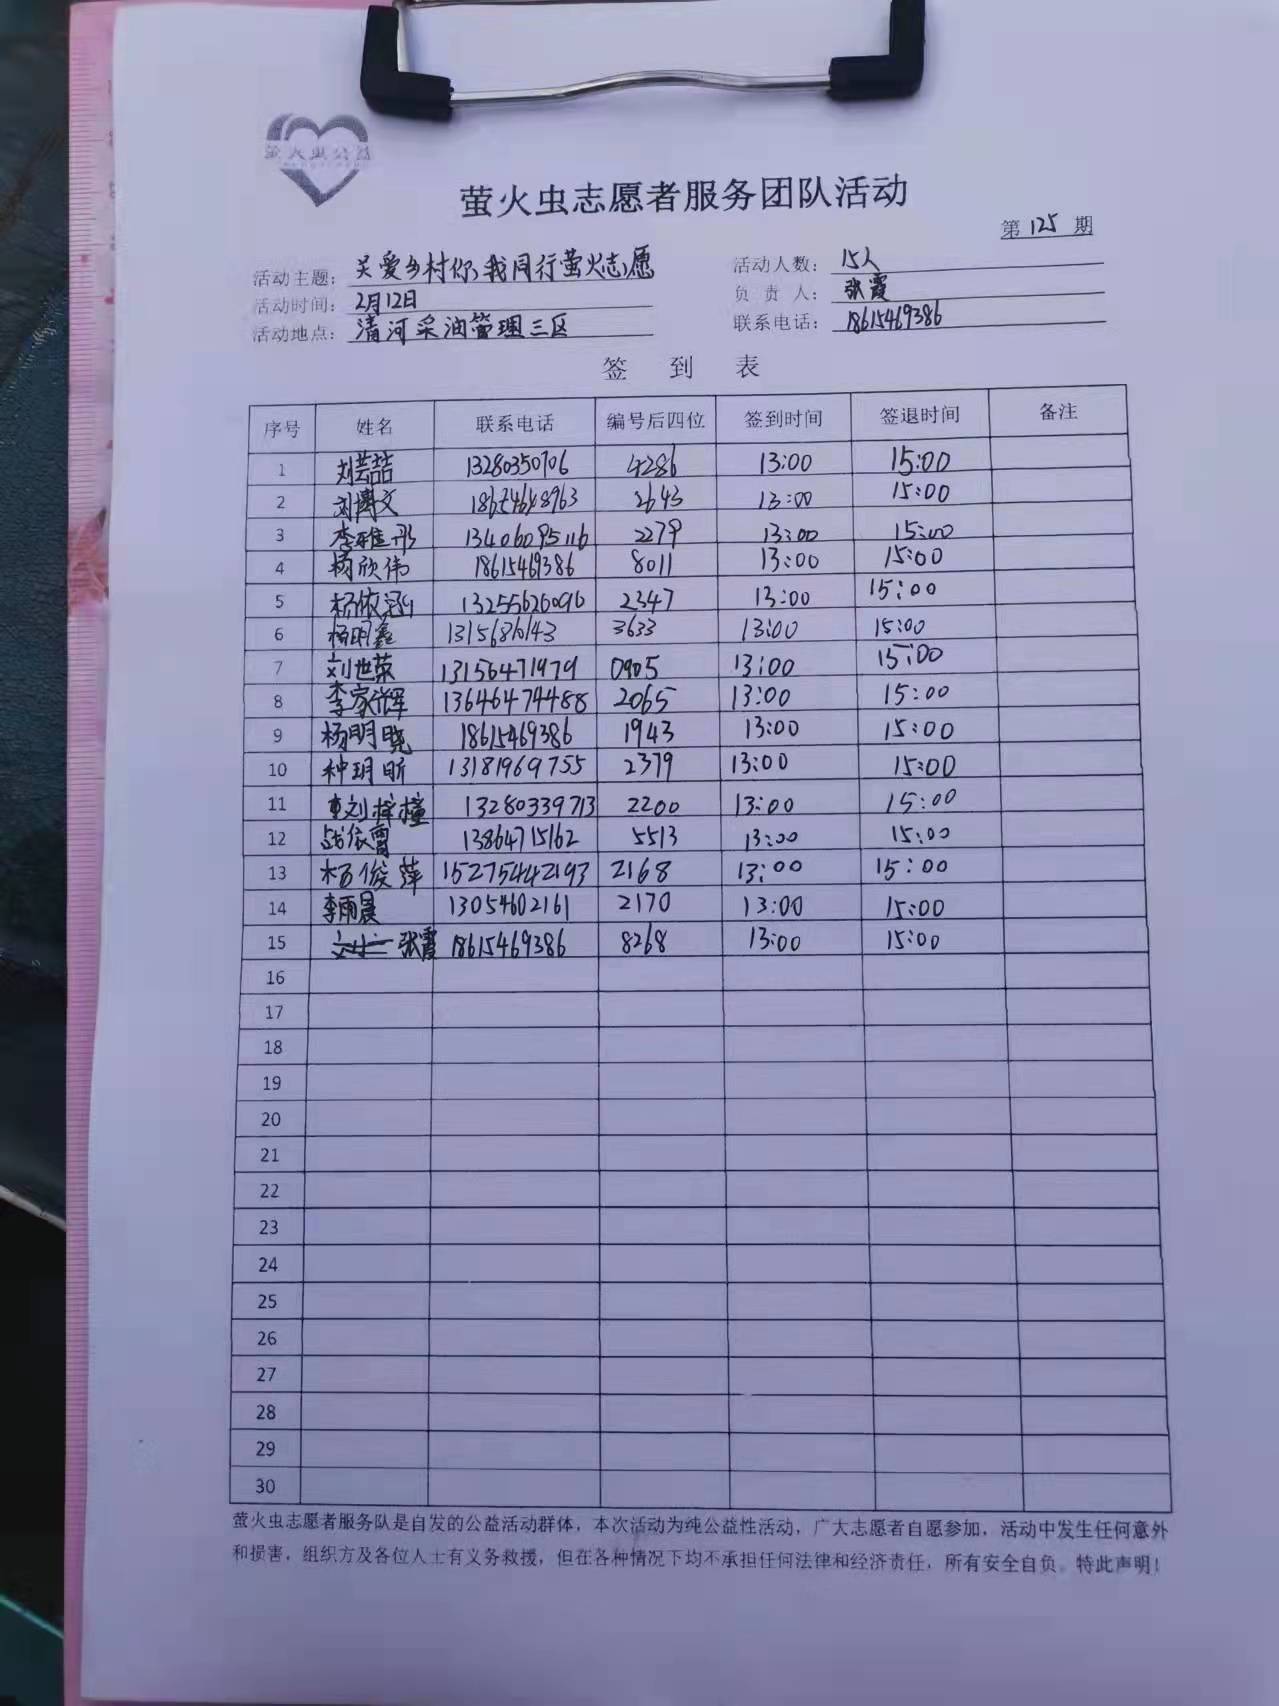 萤火虫公益
萤火虫志愿者服务团队活动
第 125 期
活动主题：关爱乡村你我同行萤火志愿 活动人数：15人
活动时间：2月12日 负责人：张霞
活动地点：清河采油管理三区 联系电话：18615469386
签到表
序号 姓名 联系电话 编号后四位 签到时间 签退时间 备注
1 刘芸喆 13280350706 4286 13:00 15:00
2 刘博文 2643 13:00 15:00
3 李雅彤 13406095116 2279 13:00 15:00
4 杨欣伟 18615469386 8011 13:00 15:00
5 杨依涵 13255626096 2347 13:00 15:00
6 杨明鑫 3633 13:00 15:00
7 刘世荣 13156471979 0905 13:00 15:00
8 李家辉 13646474488 2065 13:00 15:00
9 杨明晓 18615469386 1943 13:00 15:00
10 种玥昕 13181969755 2379 13:00 15:00
11 刘梓橦 13280339713 2200 13:00 15:00
12 13864715162 5513 13:00 15:00
13 杨俊萍 15275442193 2168 13:00 15:00
14 李雨晨 13054602161 2170 13:00 15:00
15 张霞 18615469386 8268 13:00 15:00
16
17
18
19
20
21
22
23
24
25
26
27
28
29
30
萤火虫志愿者服务队是自发的公益活动群体，本次活动为纯公益性活动，广大志愿者自愿参加，活动中发生任何意外
和损害，组织方及各位人士有义务救援，但在各种情况下均不承担任何法律和经济责任，所有安全自负。特此声明！